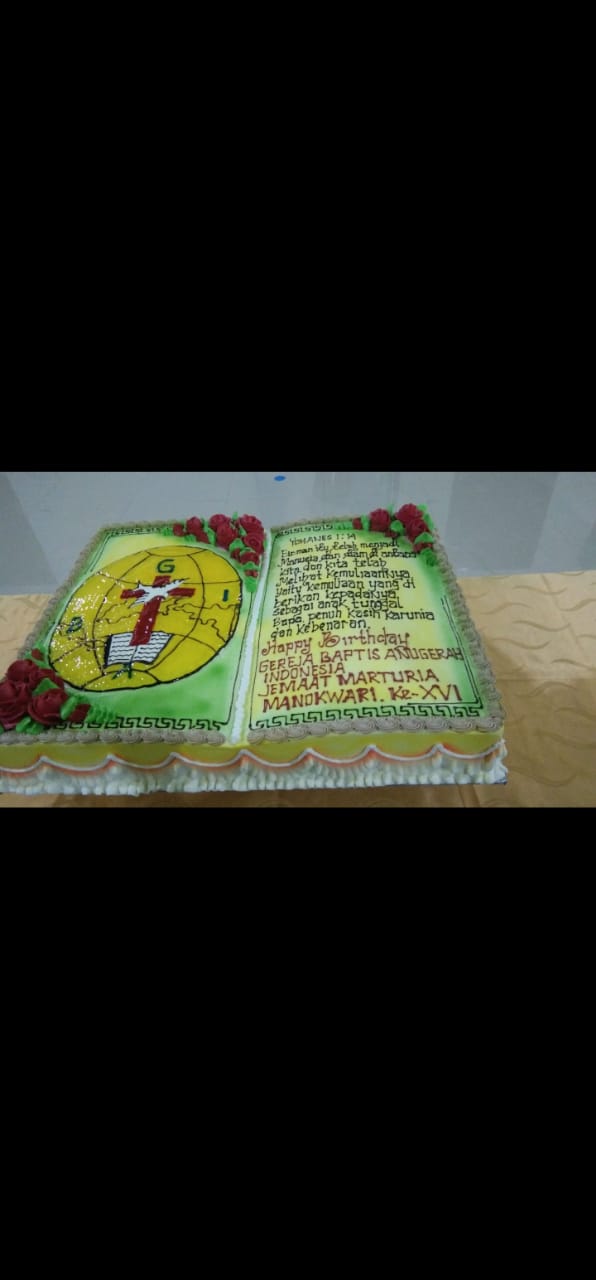 G
B
I
A
YOHANES 1:14
Firman itu telah menjadi
Manusia dan diam di antara
kita dan kita telah
Melihat kemuliaannya
yaitu kemuliaan yang di
berikan kepadanya
sebagai anak tunggal
Bapa, penuh kasih karunia
dan kebenaran.
Happy Birthday
GEREJA BAPTIS ANUGERAH
INDONESIA
JEMAAT MARTURIA
MANOKWARI. Ke-XVI